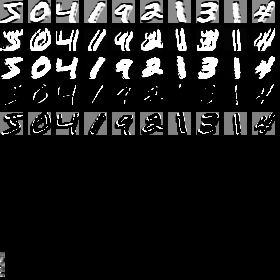 5 0 4 1 9 2 1 3 1 4
5 0 4 1 9 2 1 3 1 4
5 0 4 1 9 2 1 3 1 4
5 0 4 1 9 2 1 3 1 4
5 0 4 1 9 2 1 3 1 4